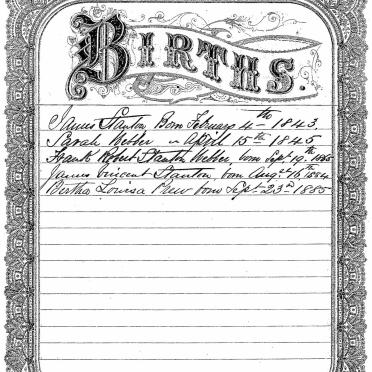 BIRTHS.
James Stanton Born February 4th 1843.
Sarah Webber " April 15th 1845
Frank Robert Stanton Webber, born Sept 19th
James Vincent Stanton, born Augst 16th 1884
Bertha Louisa born Sept 23rd 1885